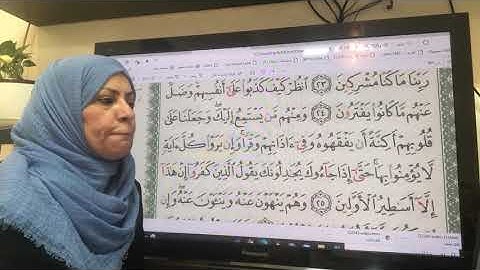 رَبِّنَا مَا كُنَّا مُشْرِكِينَ ٢٣ ٱنظُرْ كَيْفَ كَذَبُوا۟ عَلَىٰٓ أَنفُسِهِمْ وَضَلَّ
عَنْهُم مَّا كَانُوا۟ يَفْتَرُونَ ٢٤ وَمِنْهُم مَّن يَسْتَمِعُ إِلَيْكَ وَجَعَلْنَا عَلَىٰ
قُلُوبِهِمْ أَكِنَّةً أَن يَفْقَهُوهُ وَفِىٓ ءَاذَانِهِمْ وَقْرًا وَإِن يَرَوْا۟ كُلَّ ءَايَةٍ
لَّا يُؤْمِنُوا۟ بِهَا حَتَّىٰٓ إِذَا جَآءُوكَ يُجَٰدِلُونَكَ يَقُولُ ٱلَّذِينَ كَفَرُوٓا۟ إِنْ هَٰذَآ
إِلَّآ أَسَٰطِيرُ ٱلْأَوَّلِينَ ٢٥ وَهُمْ يَنْهَوْنَ عَنْهُ وَيَنْـَٔوْنَ عَنْهُ وَإِن